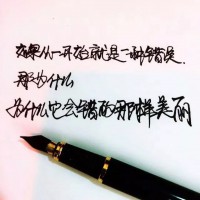 如果从一开始就是一种错误.
那为什么
为什么它会错的那样美丽